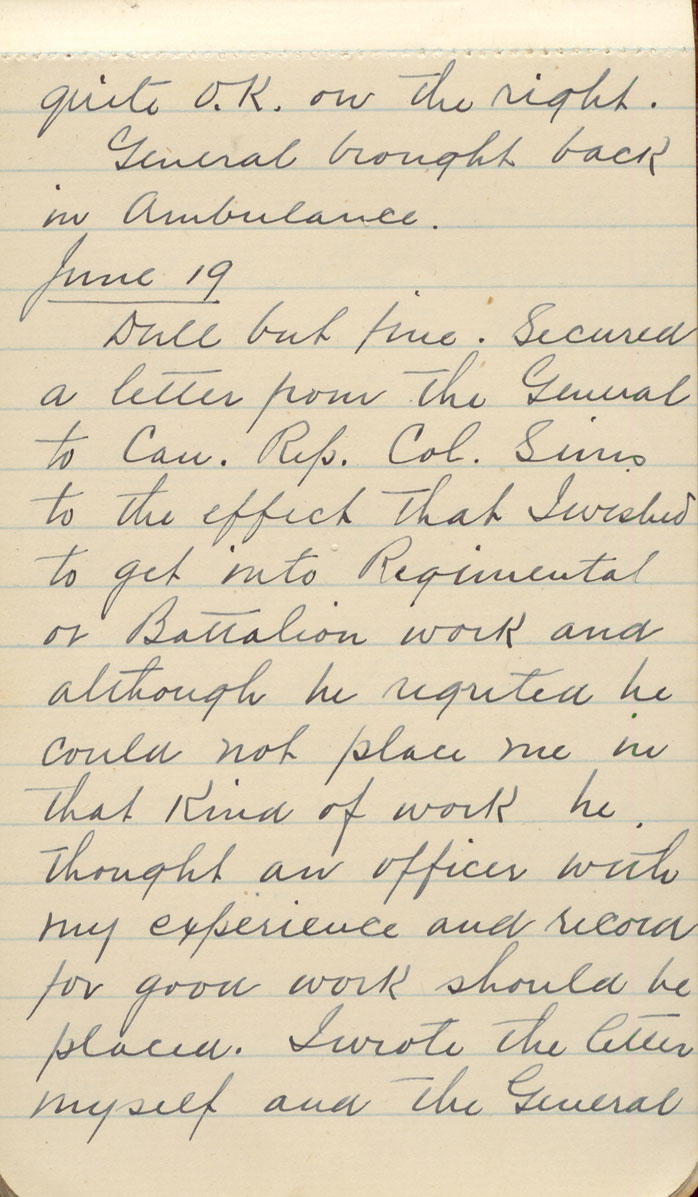 quite O.K. on the right.
General brought back
in Ambulance.
June 19
Dull but fine. Secured
a letter from the General
to Can. Rep. Col. Sims
to the effect that I wished
to get into Regimental
or Battalion work and
although he regrited he
could not place me in
that kind of work he
thought an officer with
my experience and record
for good work should be
placed. I wrote the letter
myself and the General